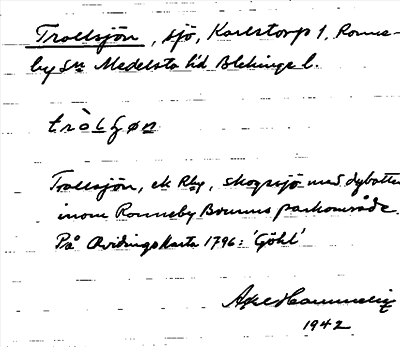 Trollsjön, sjö, Karlstorp 1, Ronne-
by sn Medelsta hd Blekinge l.
Trollsjön, ek Rby, skogssjö med dybotten
inom Ronneby Brunns parkområde.
På Avidningskarta 1796: 'Göhl'
1942